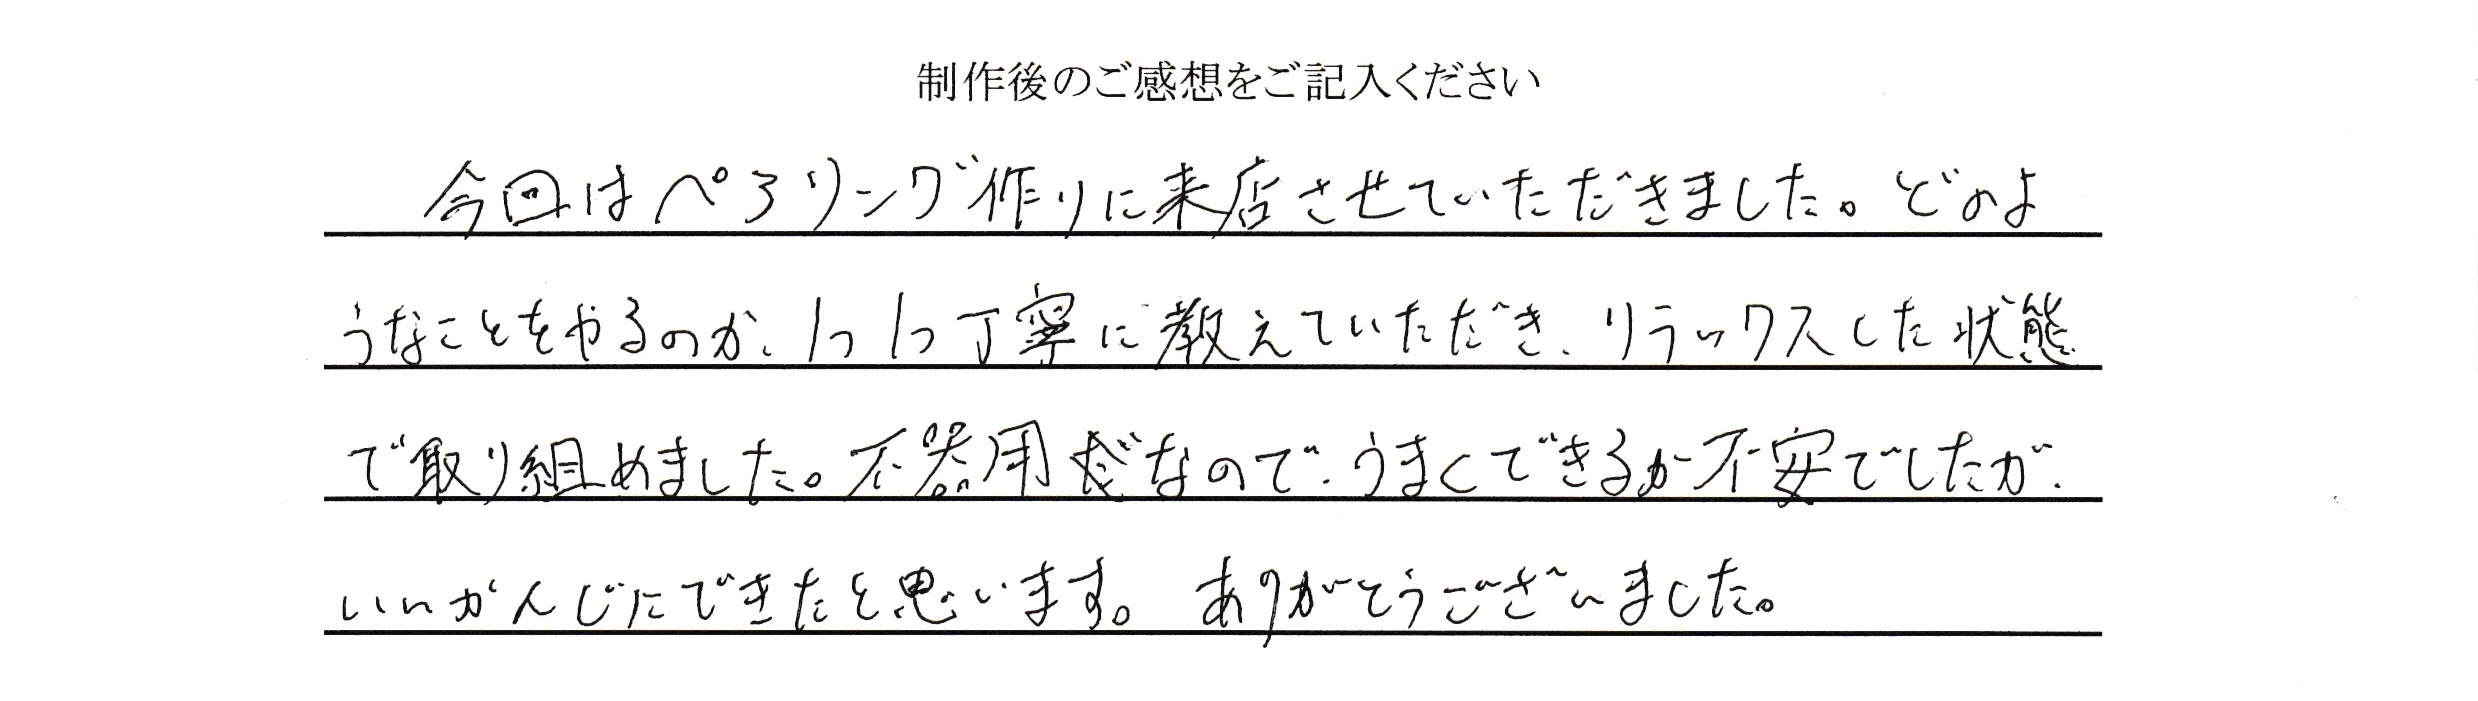 制作後のご感想をご記入ください
今回はペアリング作りに来店させていただきました。どのよ
うなことをやるのか、1つ1つ丁寧に教えていただき、リラックスした状態
で取り組めました。不器用なので、うまくできるか不安でしたが、
いいかんじにできたと思います。ありがとうございました。